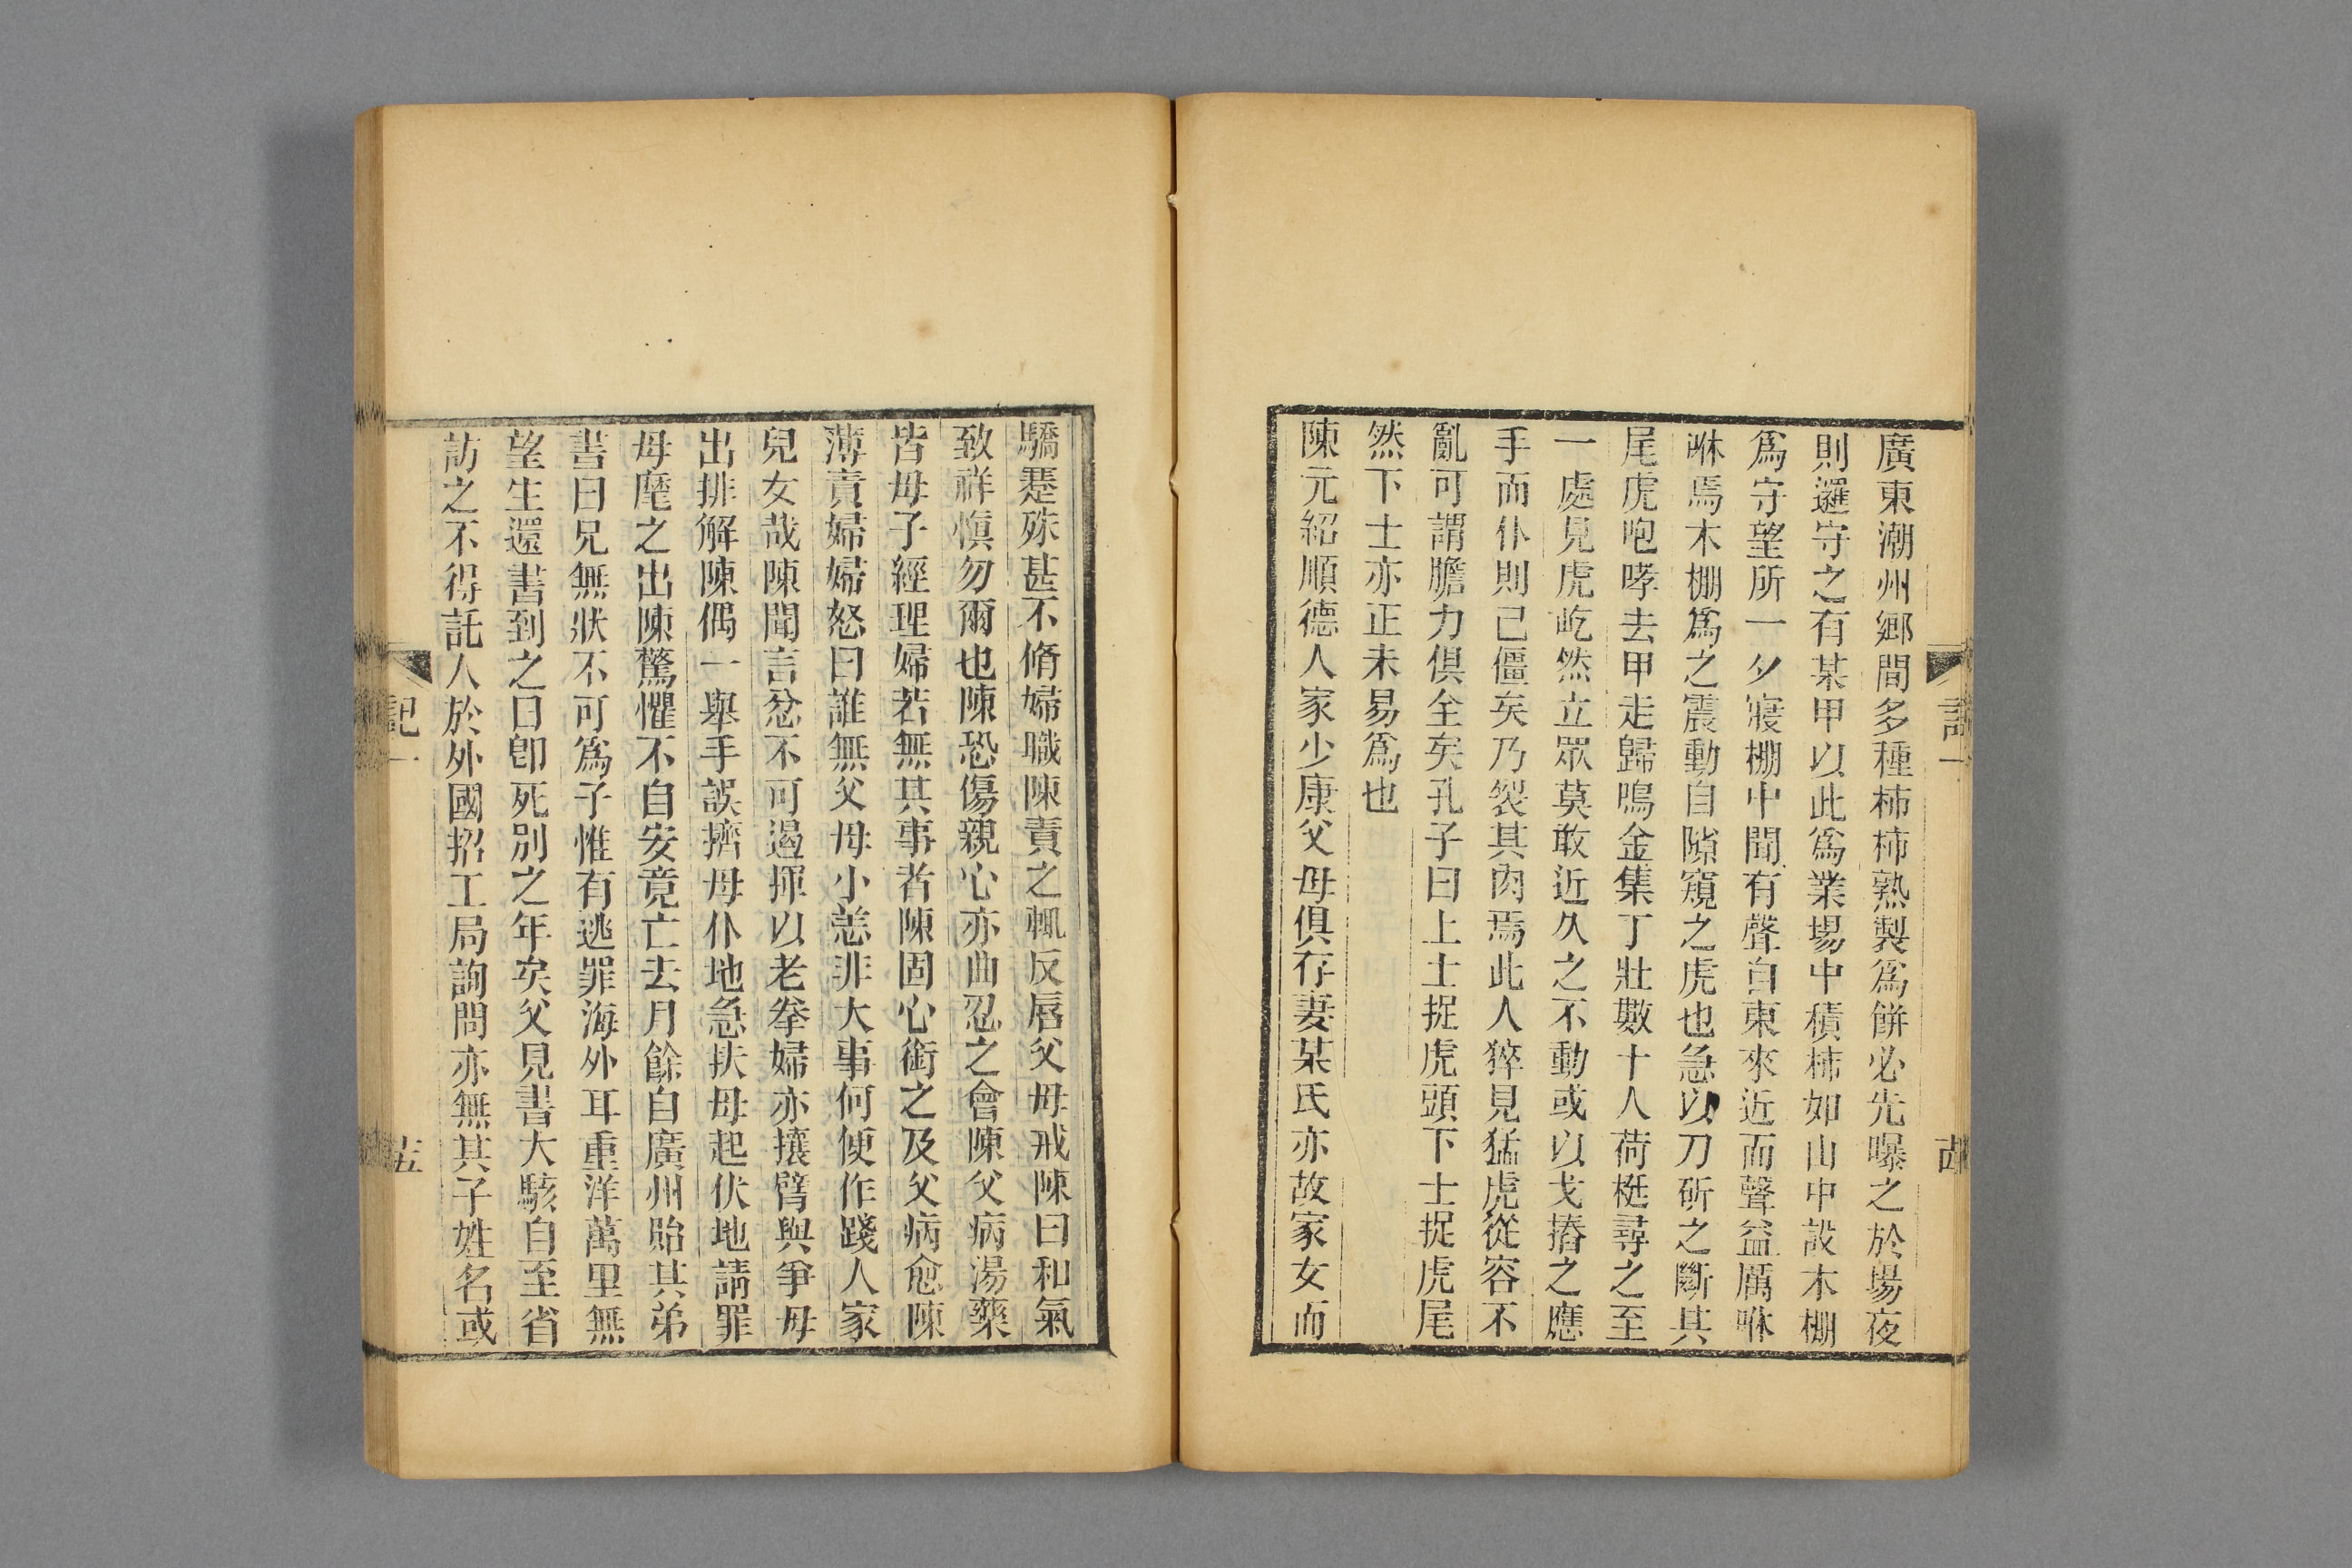 廣東潮州鄉間多種柿柿熟製爲餅必先曝之於場夜
則邏守之有某甲以此爲業場中積柿如山中設木棚
爲守望所一夕寢棚中聞有聲自東來近而聲益厲咻
咻焉木棚爲之震動自隙窺之虎也急以刀斫之斷其
尾虎咆哮去甲走歸鳴金集丁壯數十人荷梃尋之至
一處見虎屹然立眾莫敢近久之不動或以戈摏之應
手而仆則已僵矣乃裂其肉焉此人猝見猛虎從容不
亂可謂膽力俱全矣孔子曰上士捉虎頭下士捉虎尾
然下士亦正未易爲也
陳元紹順德人家少康父母俱存妻某氏亦故家女而
驕蹇殊甚不脩婦職陳責之輒反唇父母戒陳曰和氣
致祥愼勿爾也陳恐傷親心亦曲忍之會陳父病湯藥
皆母子經理婦若無其事者陳固心銜之及父病愈陳
薄責婦婦怒曰誰無父母小恙非大事何便作踐人家
兒女哉陳聞言忿不可遏揮以老拳婦亦攘臂與爭母
出排解陳偶一舉手誤擠母仆地急扶母起伏地請罪
母麾之出陳驚懼不自安竟亡去月餘自廣州貽其弟
書曰兄無狀不可爲子惟有逃罪海外耳重洋萬里無
望生還書到之日卽死別之年矣父見書大駭自至省
訪之不得託人於外國招工局詢問亦無其子姓名或
記一
五